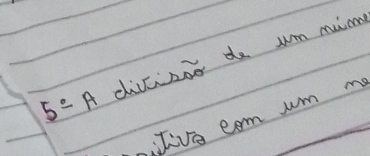 5º - A divisão de um núme
itivo com um ne